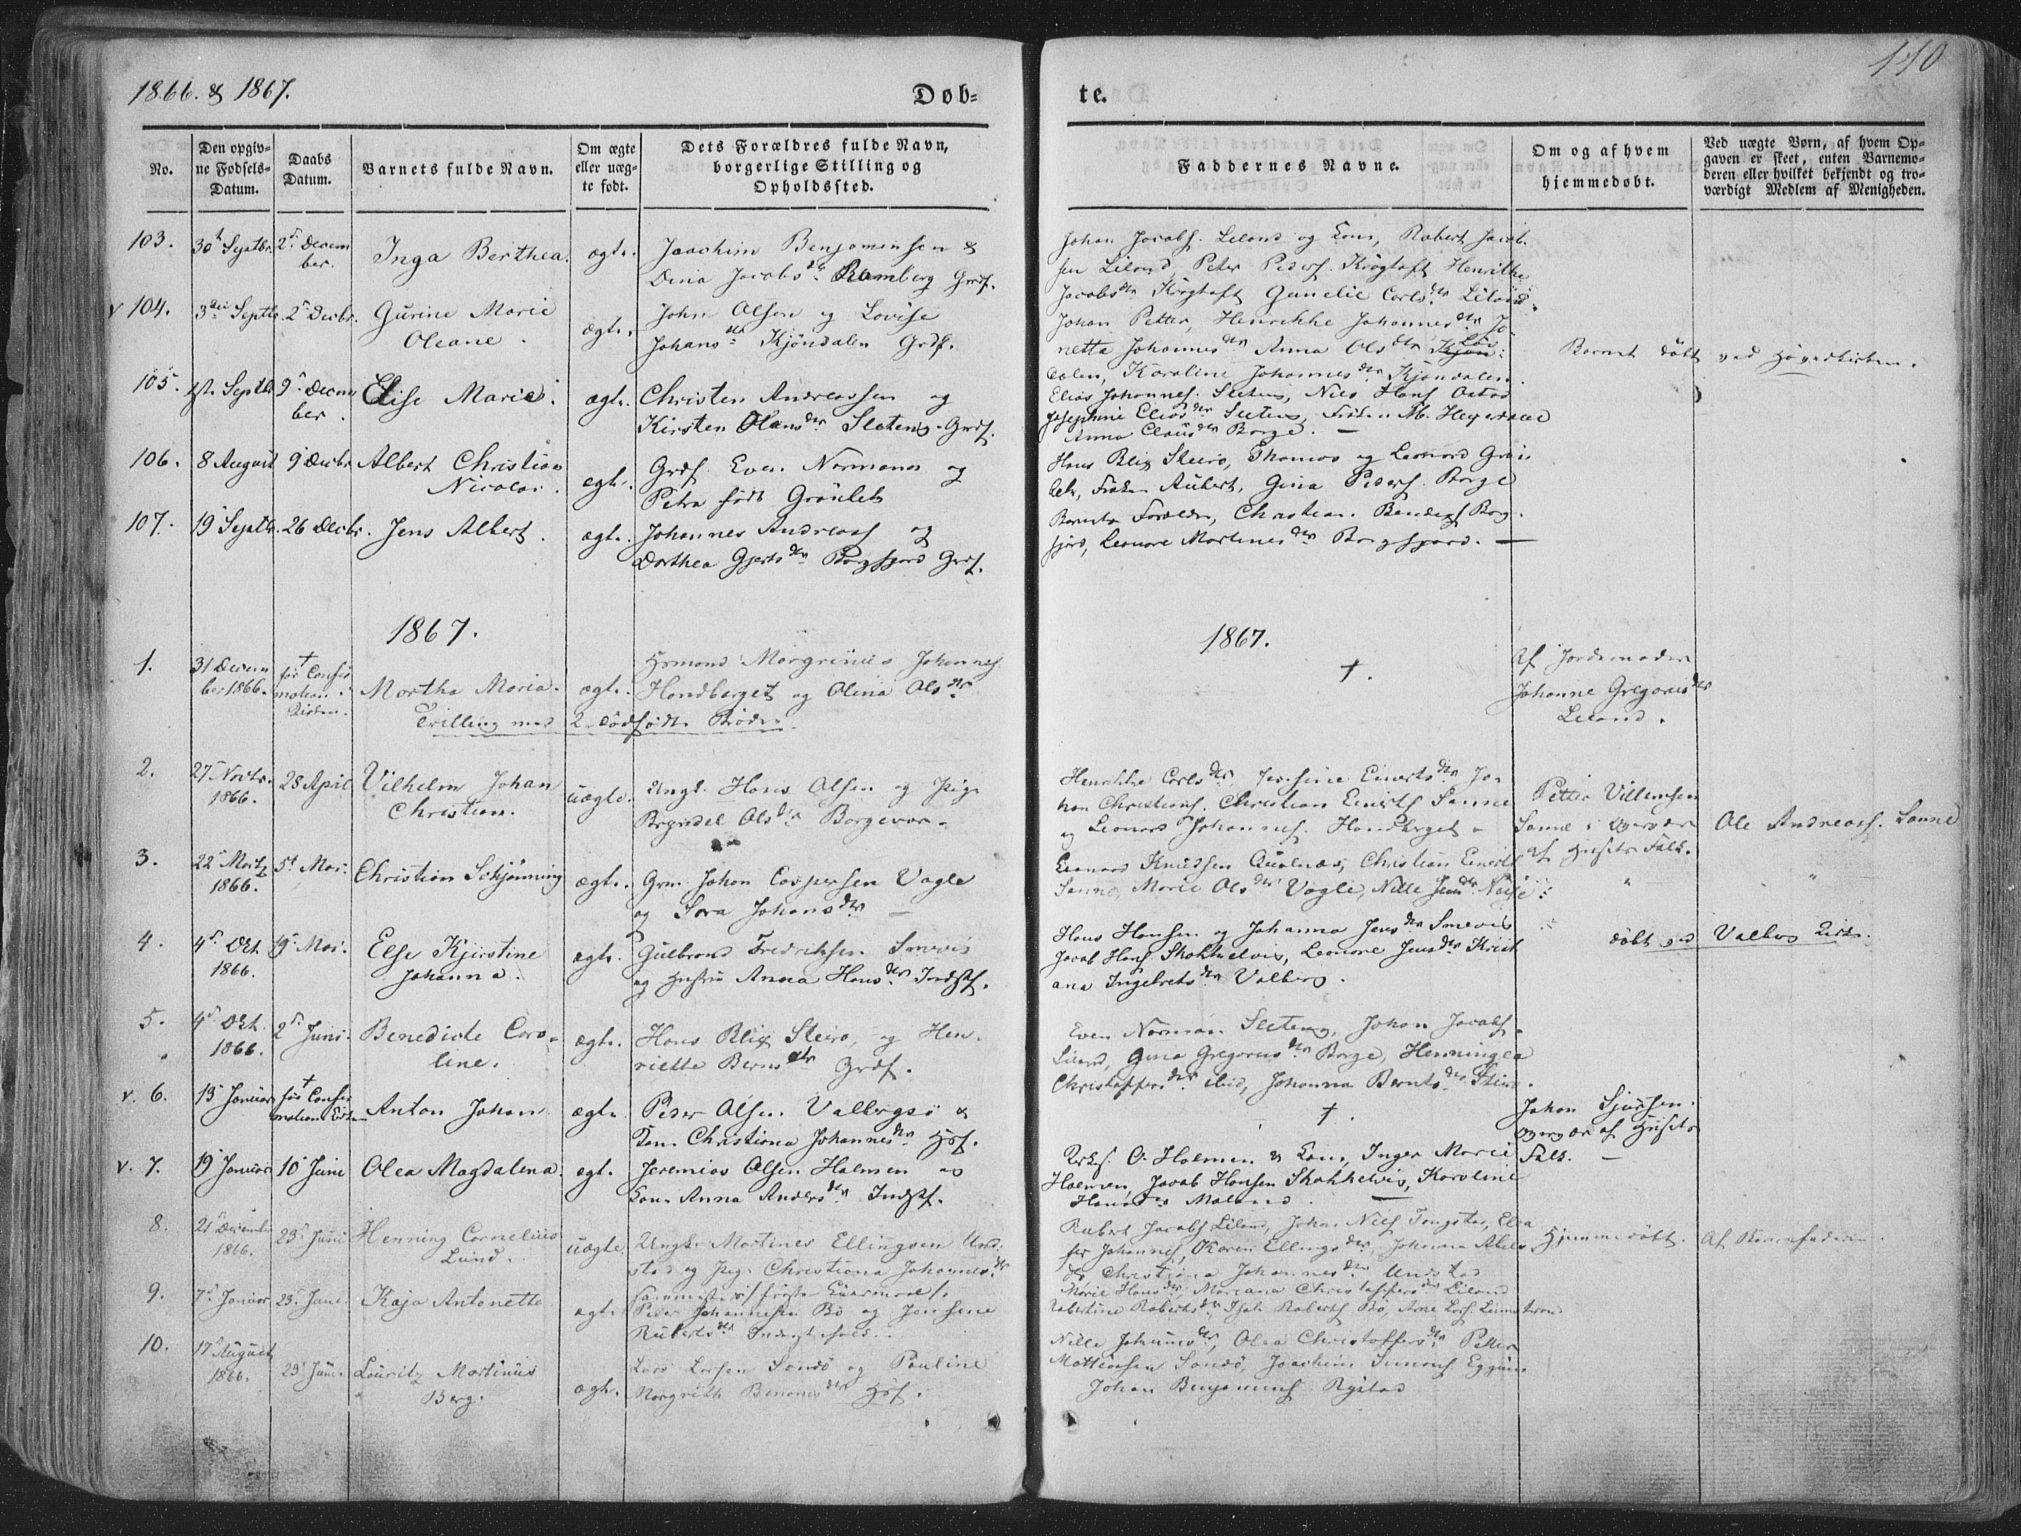 1866. & 1867.
Døb=
te.
110
No.
Den opgiv-
ne Fødsels-
Datum.
Daabs
Datum.
Barnets fulde Navn.
Om ægte
eller uæg-
te født.
Dets Forældres fulde Navn,
borgerlige Stilling og
Opholdssted.
Faddernes Navne.
Om og af hvem
hjemmedøbt.
Ved uægte Børn, af hvem Op-
gaven er skeet, enten Barnemo-
deren eller hvilket bekjendt og tro-
værdigt Medlem af Menigheden.
103.
30t Septbr.
2d Decem
ber.
Inga Berthea.
ægte.
Joachim Benjaminsen &
Dina Jacobsdr Ramberg Grdf.
Johan Jacobs. Leland og Kone, Robert Jacob
sen Leland, Peter Peders. Krøgtoft Henrikke
Jacobsdr Krøgtoft Gunelie Carlsdr Leland.
v 104.
3die Septbr.
2d Decbr.
Gurine Marie
Oleane.
ægte.
John Olsen og Lovise
Johansdr Kjøndalen Grdf.
Johan Petter, Henrikke Johannesdr Jo
netta Johannesdr Anna Olsdr
dalen, Karoline Johannesdr Kjøndalen.
Barnet døbt ved Hovedkirken.
105.
Septbr
9d Decem
ber.
Elise Marie.
ægte.
Christen Andreassen og
Kirsten Hansdr Sleteng Grdf.
Elias Johannes. Sleteng, Nils Hans.
Josephine Eliasdr Sleteng, Frøken M. Heyerdahl
Anna Clausdr Borge. —
106.
8 August
9d Decbr
Albert Christian
Nicolai.
ægte.
Grdf. Even Normann og
Petra født Grønbek
Hans Blix Steiro, Thomas og Leonard Grøn
bek, Frøken Aubert, Gina Peders. Borge
107.
19d Septbr.
26 Decbr.
Jens Albert.
ægte.
Johannes Andreass. og
Dorthea Gjertsdr Borgfjord Grdf.
Barnets Forældre, Christian Bendixs. Borg-
fjord, Leonore Martinesdr Borgfjord. —
1867.
1867.
1.
31 Decem
ber 1866.
†
før Confir
mation i
Kirken.
Martha Maria.
ægte.
Hrmand Margrinus Johannes.
Handberget og Olina Olsdr
Trilling med 2 dødfødte Brødre.
†.
Af Jordemoder
Johanne Gregoriusdr
Leland.
2.
27d Novbr.
1866.
28 April
Vilhelm Johan
Christian.
uægte.
Ungk. Hans Olsen og Pige
Bergridel Olsdr Borgevær.
Henrikke Carlsdr Josefine Einertsdr Jo-
han Christians. Christian Einerts. Sanne
og Leonard Johannes. Handberget.
Petter Villumsen
Sanne i Nærvær
af Husets Folk.
Ole Andreass. Sanne
3.
22d Martz
1866.
5t Mai.
Christian Schjønning
ægte.
Grm. Johan Caspersen Vagle
og Sara Johansdr —
Leonard Knudsen Qualnæs, Christian Einerts.
Sanne, Marie Olsdr Vagle, Nille Jensdr
"
"
4.
4d Okt.
1866.
19d Mai.
Else Kjirstine
Johanna.
ægte.
Gulbrand Fredriksen Smevis
og Hustru Anna Hansdr Indstf.
Hans Hansen og Johanna Jensdr Smevis
Jacob Hans. Skokkelvig, Leonore Jensdr Krist
ana Ingebretsdr Valberg.
døbt ved Valberg Kirke.
5.
4d Okt.
1866.
2d Juni.
Benedicte Caro-
line.
ægte.
Hans Blix Steiro, og Hen-
riette Berntsdr Grdf.
Even Norman Sleteng, Johan Jacobs.
Leland, Gina Gregoriusdr Borge, Henningea
Christoffersdr ibid, Johanna Berntsdr Steiro.
v. 6.
13 Januar
†
før Confir
mation i Kirken
Anton Johan
ægte.
Peder Olsen Valbergsø &
Kone Christiana Johannesdr Hsf.
†.
Johan Sjursen.
Nærvær af Husets
Folk. —
v. 7.
19d Januar
10d Juni
Olea Magdalena.
ægt.
Jeremias Olsen Holmen og
Kone Anna Andersdr Indstf.
Kirks. O. Holmen & Kone, Inger Marie
Holmen, Jacob Hansen Skokkelvig, Karoline
Hansdr Maland. —
8.
21 December
1866.
23d Juni
Henning Cornelius
Lund.
uægte.
Ungk. Martines Ellingsen Und-
stad og Pige Christiana Johannesdr
sammesteds første Leiermaal.
Robert Jacobs. Leland, Johan Niels. Tangstad, Elea
ser Johannes., Karen Ellingsdr, Johanna
Christiana Johannesdr Undstad
Hjemmedøbt. Af Barnefaderen.
9.
7d Januar
23d Juni
Kaja Antonette
ægte.
Peder Johannesen Bø og Jensine
Robertsdr
Marie Hansdr, Mariana Christoffersdr Leland
Robertine Robertsdr Isak Roberts. Bø, Arne Lars. Limstrand
10.
17d August
1866.
23d Juni
Lauritz Martinus
Berg.
ægte.
Lars Larsen Sandø og Pauline
Margrith Benonisdr Hsf.
Nille Johannesdr, Olea Christoffersdr Petter
Mathiasen Sandø, Joachim Simons. Eggum
Johan Benjamins. Rystad